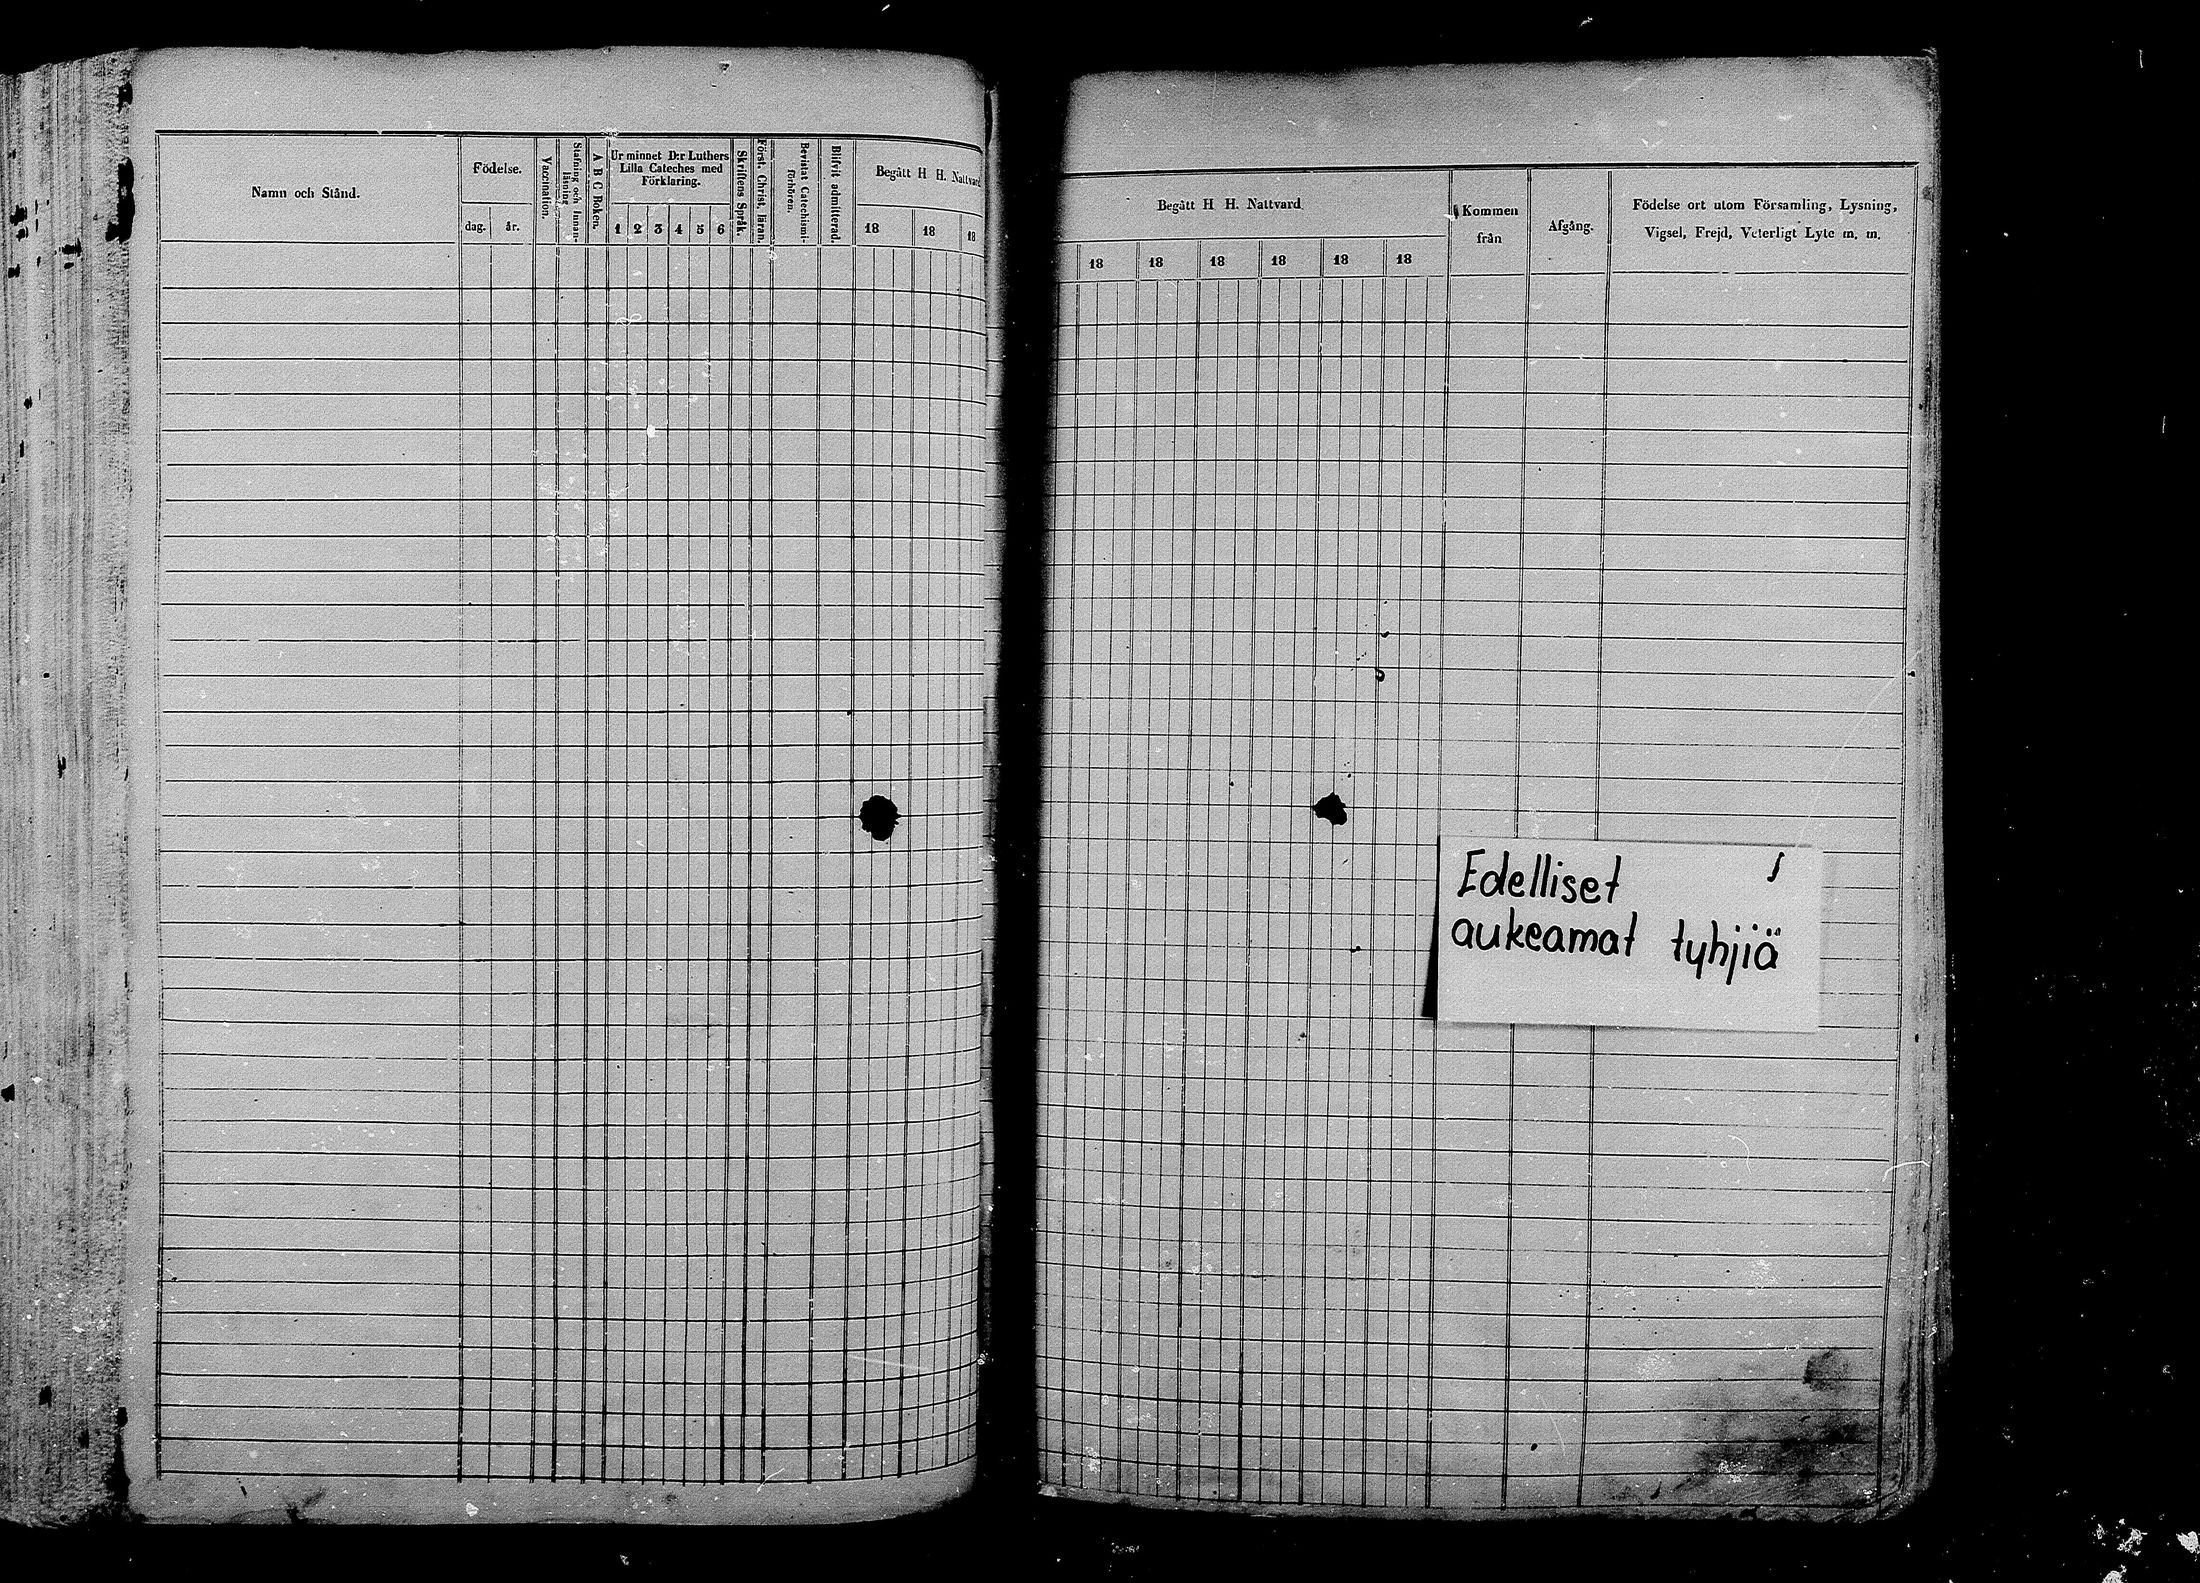 Namn och Stånd.
Födelse.
dag.
år.
Vaccination.
Stafning och Innan-
läsning
A B C Boken.
Ur minnet D:r Luthers
Lilla Cateches med
Förklaring.
1 2 3 4 5 6
Skriftens Språk.
Först. Christ. läran.
Bevistat Catechismi-
förhören.
Blifvit admitterad.
Begått H H. Nattvard
18 18 18
Begått H H. Nattvard.
18 18 18 18 18 18
Kommen
från
Afgång.
Födelse ort utom Församling, Lysning,
Vigsel, Frejd, Veterligt Lyte m. m.
Edelliset
aukeamat tyhjiä